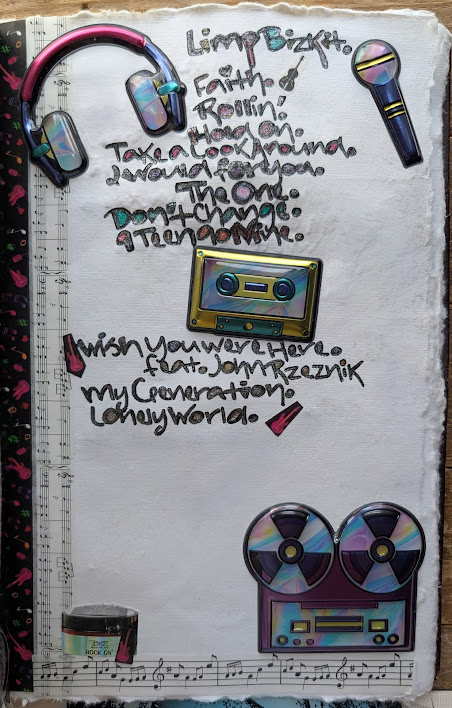 Limp Bizkit.
Faith.
Rollin'.
Hold On.
Take a Look Around.
I would for you.
The One.
Don't Change.
9Teen90Nine.
Wish You Were Here.
feat. John Rzeznik
My Generation.
Lonely World.
ROCK ON